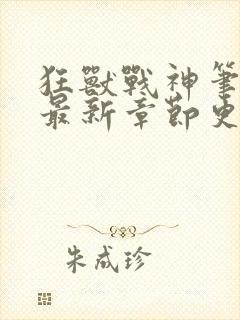 狂獸戰神筆
最新章節史
朱成珍